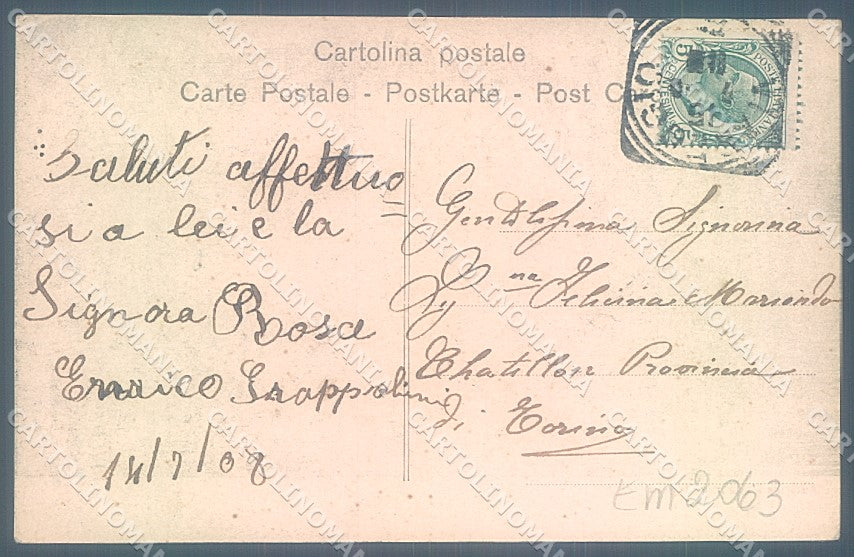 Cartolina postale
Carte Postale - Postkarte - Post C
Saluti affettuo
si a lei e la
Signora Rosa
Enrico Grappolini
14/7/08
Gentilissima Signorina
Sg.na Felicina
Chatillon Provincia
di Torino
EM2063
CARTOLINOMANIA